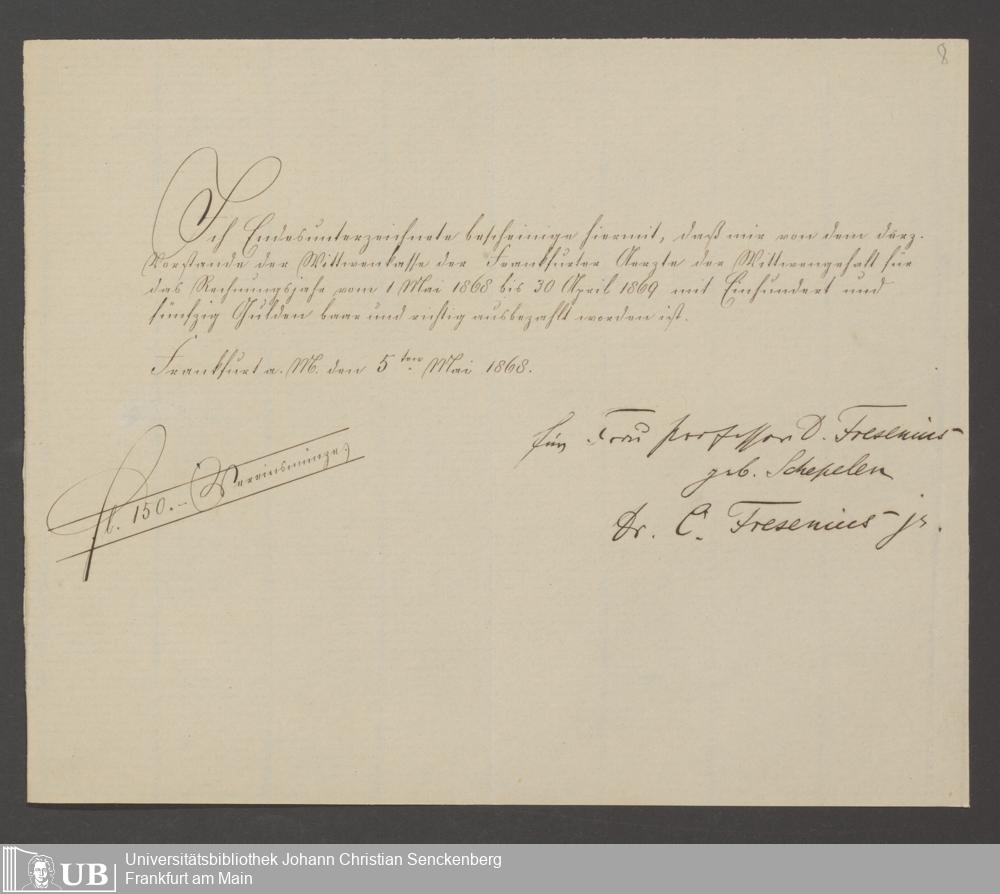 8
Ich Endesunterzeichnete bescheinige hiermit, daß mir von dem derz.
Vorstande der Wittwenkasse der Frankfurter Aerzte der Wittwengehalt für
das Rechnungsjahr vom 1 Mai 1868 bis 30 April 1869 mit Einhundert und
fünfzig Gulden baar und richtig ausbezahlt worden ist.
Frankfurt a. M. den 5ten Mai 1868.
für Frau Professor D. Fresenius
geb. Schepeler
Dr. C. Fresenius jr.
fl. 150.- (Vereinsmünze.)
UB
Universitätsbibliothek Johann Christian Senckenberg
Frankfurt am Main